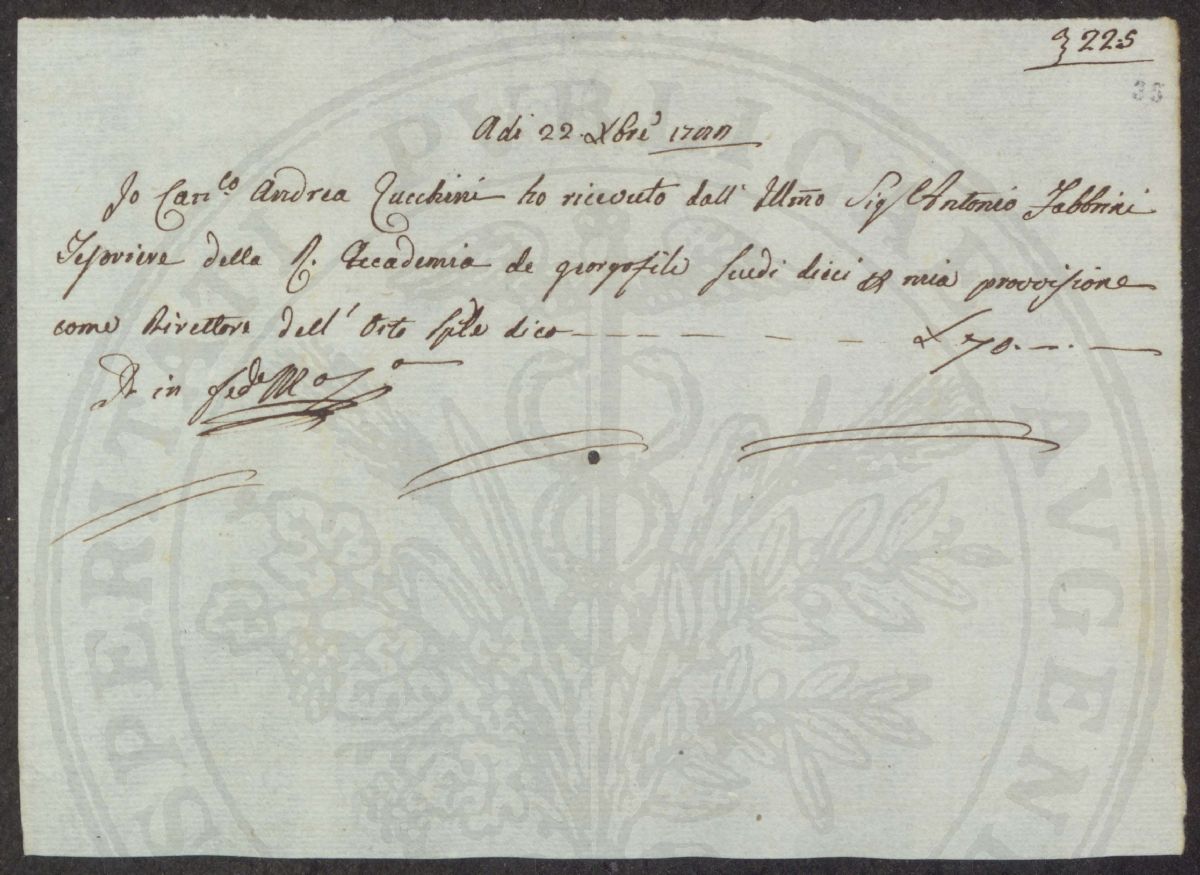 225
35
Adi 22. Xbre 1788
Io Can.co Andrea Zucchini ho ricevuto dall' Illmo Sig Antonio Fabbrini
Tesoriere della R. Accademia de georgofili scudi dieci mia provvisione
come Direttore dell' Orto Sple dico ƚ 70.-.-
in fede Mo Pa
PUBLICAE
PROSPERITATI AVGENDAE